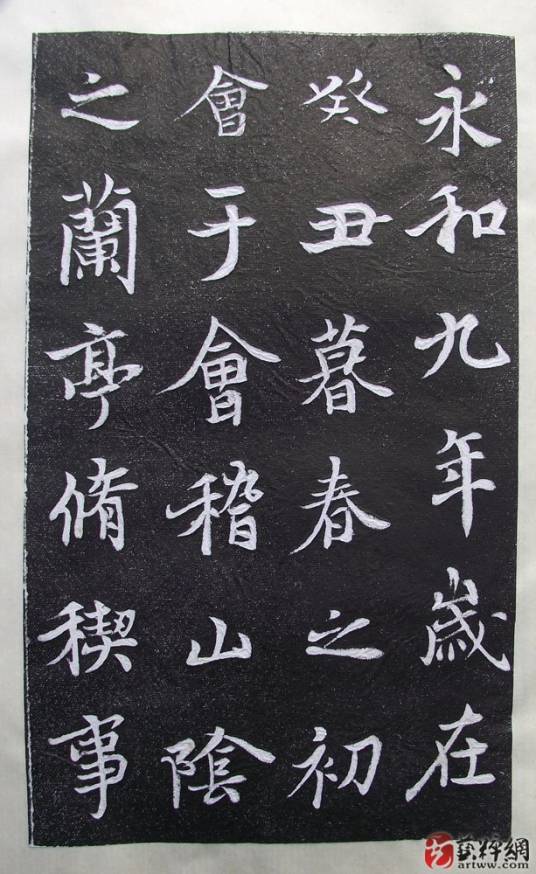 永和九年歲在
癸丑暮春之初
會于會稽山陰
之蘭亭脩稧事
藝粹網
artww.com